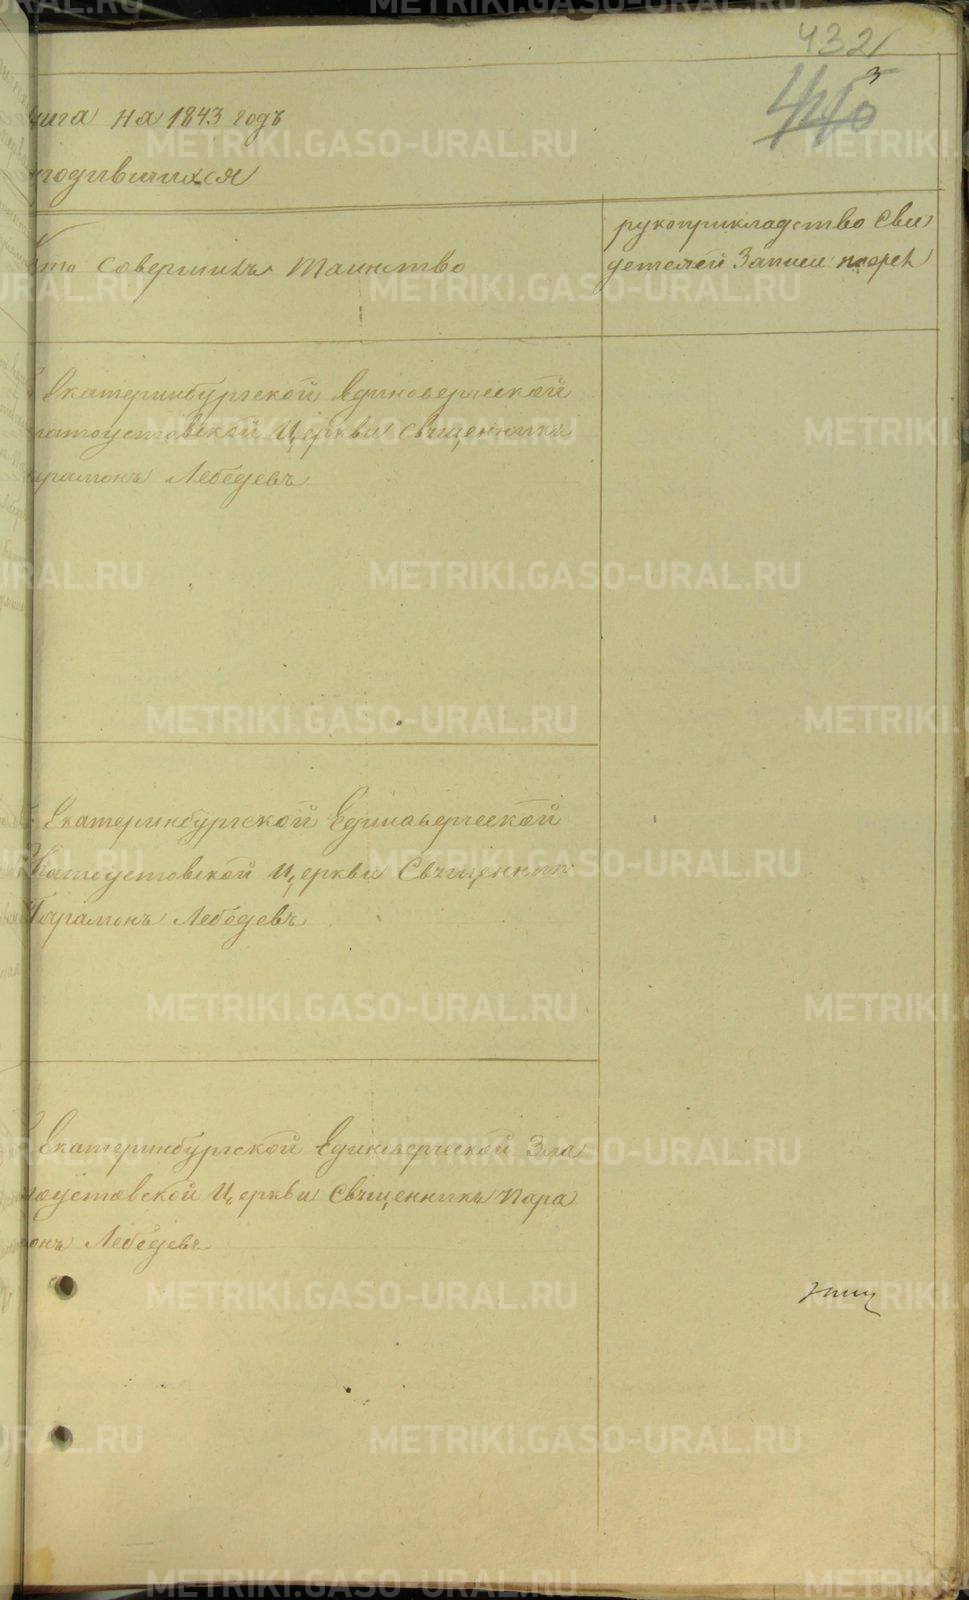 432
нига на 1843 годъ
родившихся
Кто совершилъ Таинство
рукоприкладство Сви
детелей Записи
Екатеринбургской Единоверческой
латоустовской Церкви Священникъ
арамонъ Лебедевъ
Екатеринбургской Единоверческой
Златоустовской Церкви Священник
Парамонъ Лебедевъ
Екатеринбургской Единоверческой Зла
тоустовской Церкви Священникъ Пара
онъ Лебедевъ
METRIKI.GASO-URAL.RU